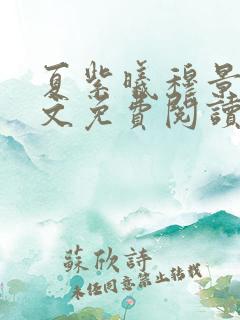 夏紫曦穆景
文免費閱讀
蘇欣詩
未经同意禁止转载